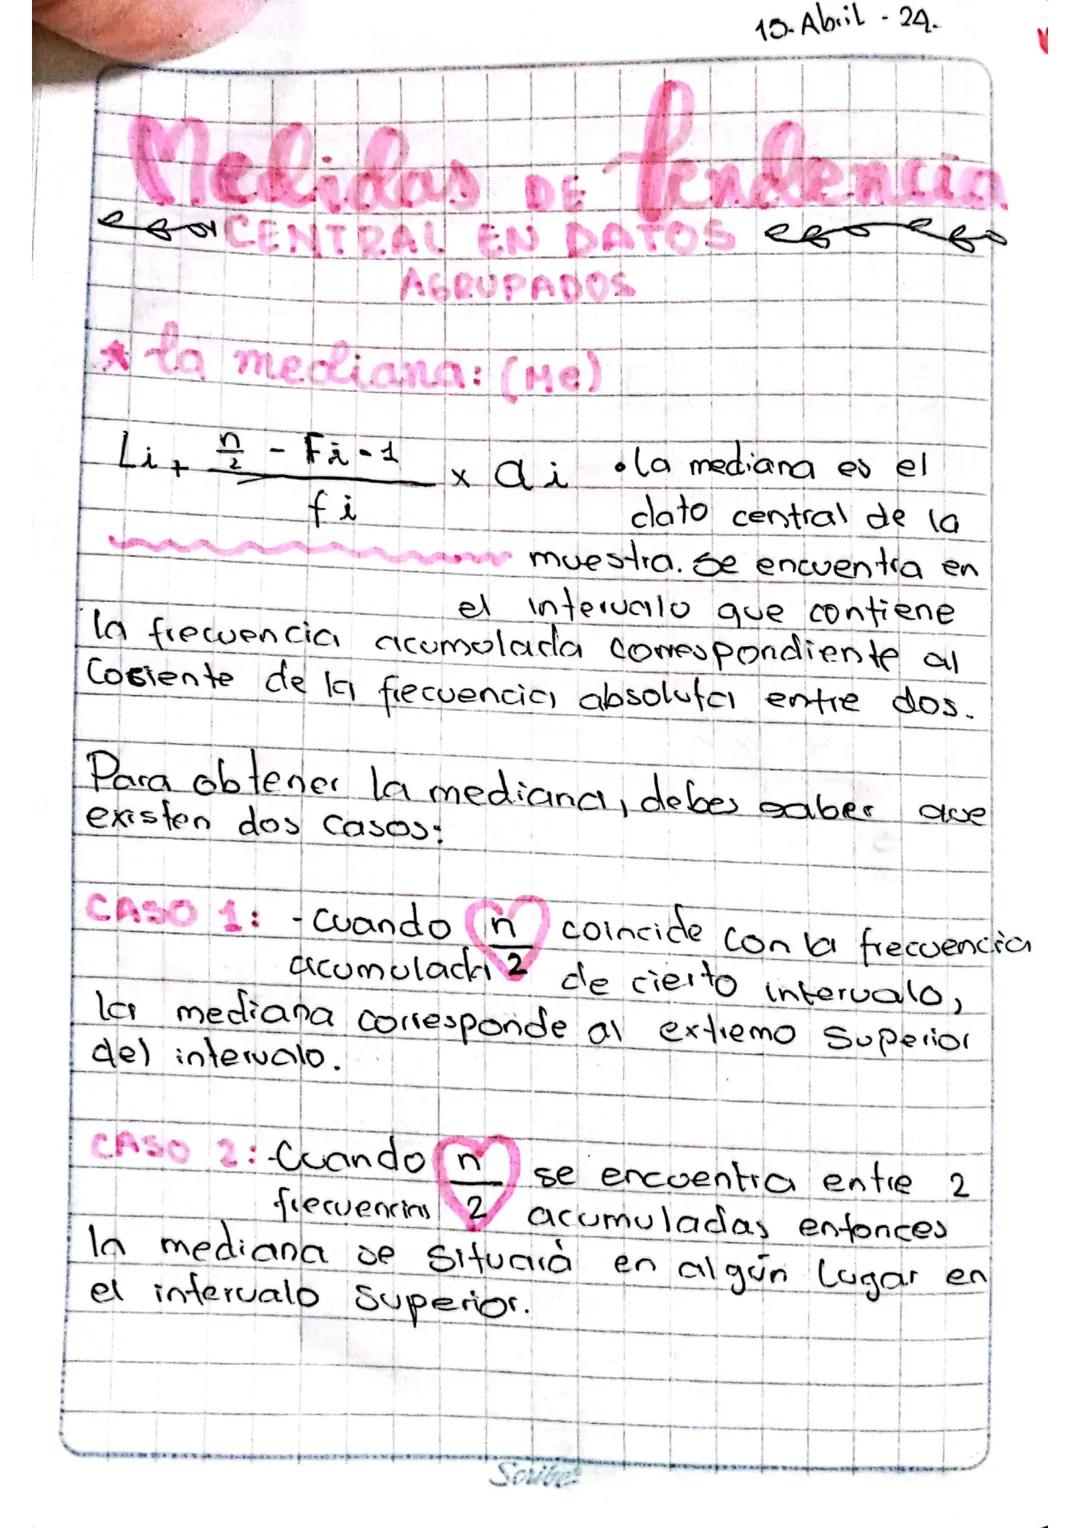 10. Abril - 24.
Medidas DE tendencia
CENTRAL EN DATOS
AGRUPADOS
* la mediana: (Me)
Li + (n/2 - Fi-1)/fi x ai • la mediana es el
dato central de la
muestra. Se encuentra en
el intervalo que contiene
la frecuencia acumolada correspondiente al
Cosiente de la frecuencia absoluta entre dos.
Para obtener la mediana, debes saber que
existen dos casos:
CASO 1: - Cuando n/2 coincide con la frecuencia
acumulada de cierto intervalo,
la mediana corresponde al extremo Superior
del intervalo.
CASO 2: - Cuando n/2 se encuentra entre 2
frecuencias acumuladas entonces
la mediana se situará en algún lugar en
el intervalo Superior.
Scribe